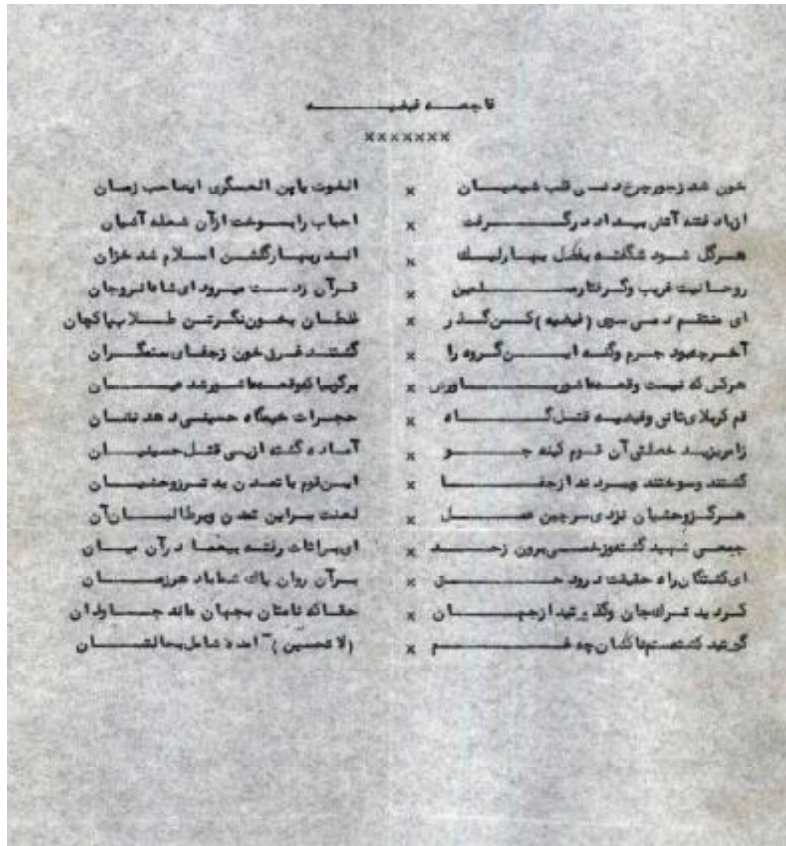 فاجعه فیضیه
×××××××
خون شد زجور چرخ دنی قلب شیعیان × الغوث یابن العسکری ایصاحب زمان
ازباد فتنه آتش بیداد درگرفت × احباب را بسوخت ازآن شعله آشیان
هرگل شود شگفته بفصل بهار لیک × اندر بهار گلشن اسلام شد خزان
روحانیت غریب وگرفتار × قرآن زدست میرود ای شاه انس وجان
ای منتقم دمی سوی (فیضیه) کن گذر × غلطان بخون نگر تن طلاب پاکجان
آخر چه بود جرم وگنه این گروه را × گشتند غرق خون زجفای ستمگران
هرکس که نیست وقعه عاشورا باورش × برگو بیا که وقعه عاشور شد عیان
قم کربلای ثانی وفیضیه قتلگاه × حجرات خیمگاه حسینی دهد نشان
یزید خصلتی آن قوم کینه جو × آماده گشته ازپی قتل حسینیان
کشتند وسوختند وببردند ازجفا × این قوم با تمدن بدتر زوحشیان
هرگز وحشیان نزدی سر چنین عمل × لعنت براین تمدن وبرطالبان آن
جمعی شهید گشته وزخمی برون زحد × ای برا ثاث رفته بیغما درآن میان
ای کشتگان راه حقیقت درود حق × برآن روان پاک شما باد هرزمان
کردید ترک جان وگذشتید ازجهان × حقا که نامتان بجهان ماند جاودان
گرشید کشته ستم ناکسان چه غم × (لا تحسبن) آمده شامل بحالتان